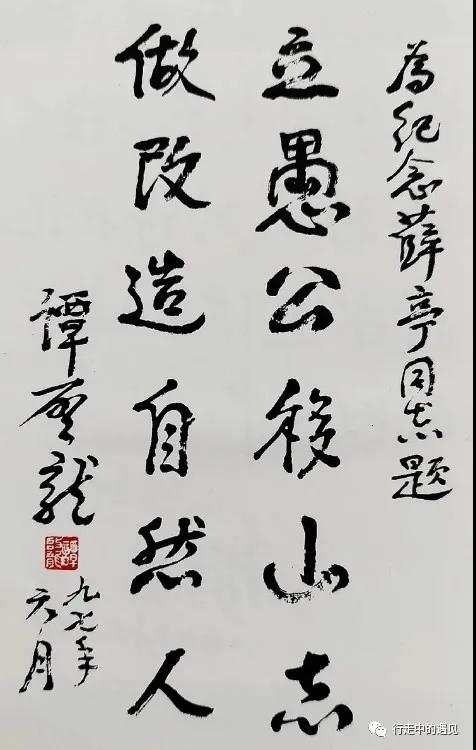 為纪念薛亭同志题
立愚公移山志
做改造自然人
譚啓龍
九七年
六月
行走中的遇见